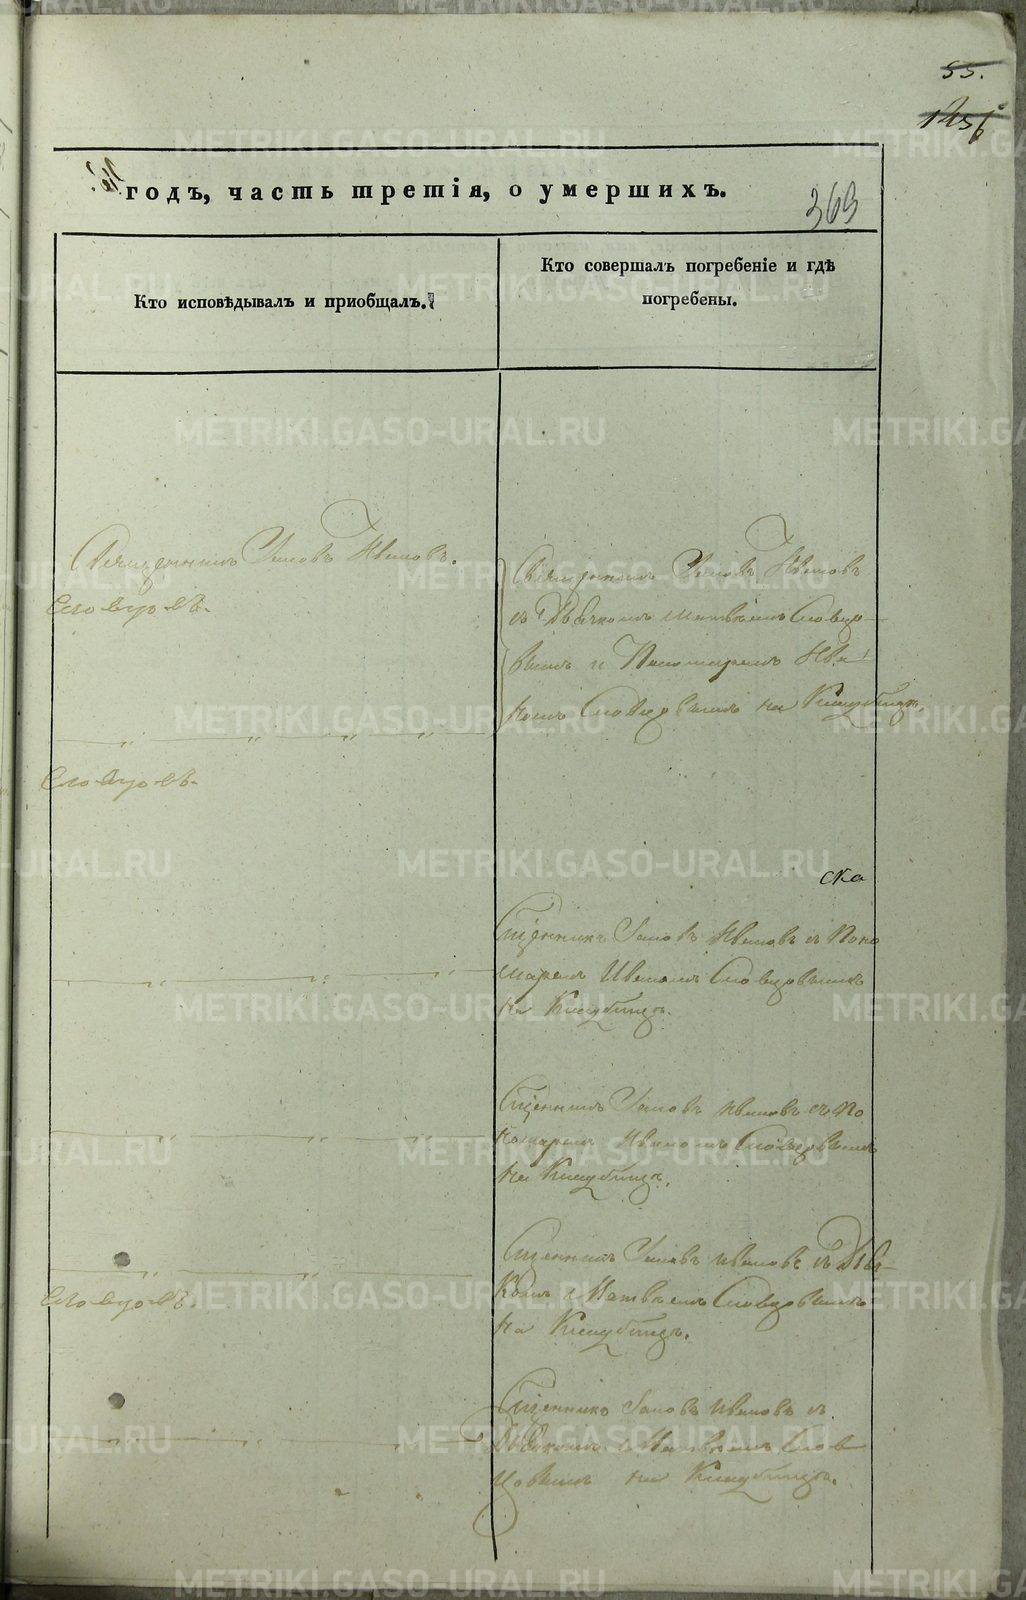 55.
годъ, часть третія, о умершихъ.
369
Кто исповѣдывалъ и приобщалъ.
Кто совершалъ погребеніе и гдѣ
погребены.
Священникъ Іаковъ Ивановъ.
Священникъ Іаковъ Ивановъ
съ Дьячкомъ Матвѣемъ Словцо-
вымъ и Пономаремъ Ива-
номъ Словцовымъ на Кладбищѣ.
ска
Сщенникъ Іаковъ Ивановъ съ Поно
маремъ Иваномъ Словцовымъ
на Кладбищѣ.
Сщенникъ Іаковъ Ивановъ съ По
номаремъ Иваномъ Словцовымъ
на Кладбищѣ.
Сщенникъ Іаковъ Ивановъ съ Дья-
комъ Матвѣемъ Словцовымъ
на Кладбищѣ.
Сщенникъ Іаковъ Ивановъ съ
Дьячкомъ Матвѣемъ Слов
цовымъ на Кладбищѣ.
METRIKI.GASO-URAL.RU